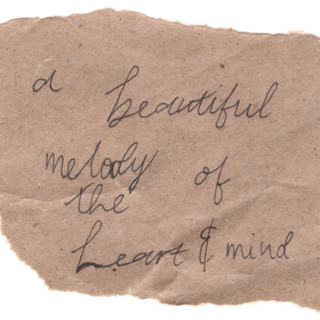 a beautiful
melody of
the
heart & mind